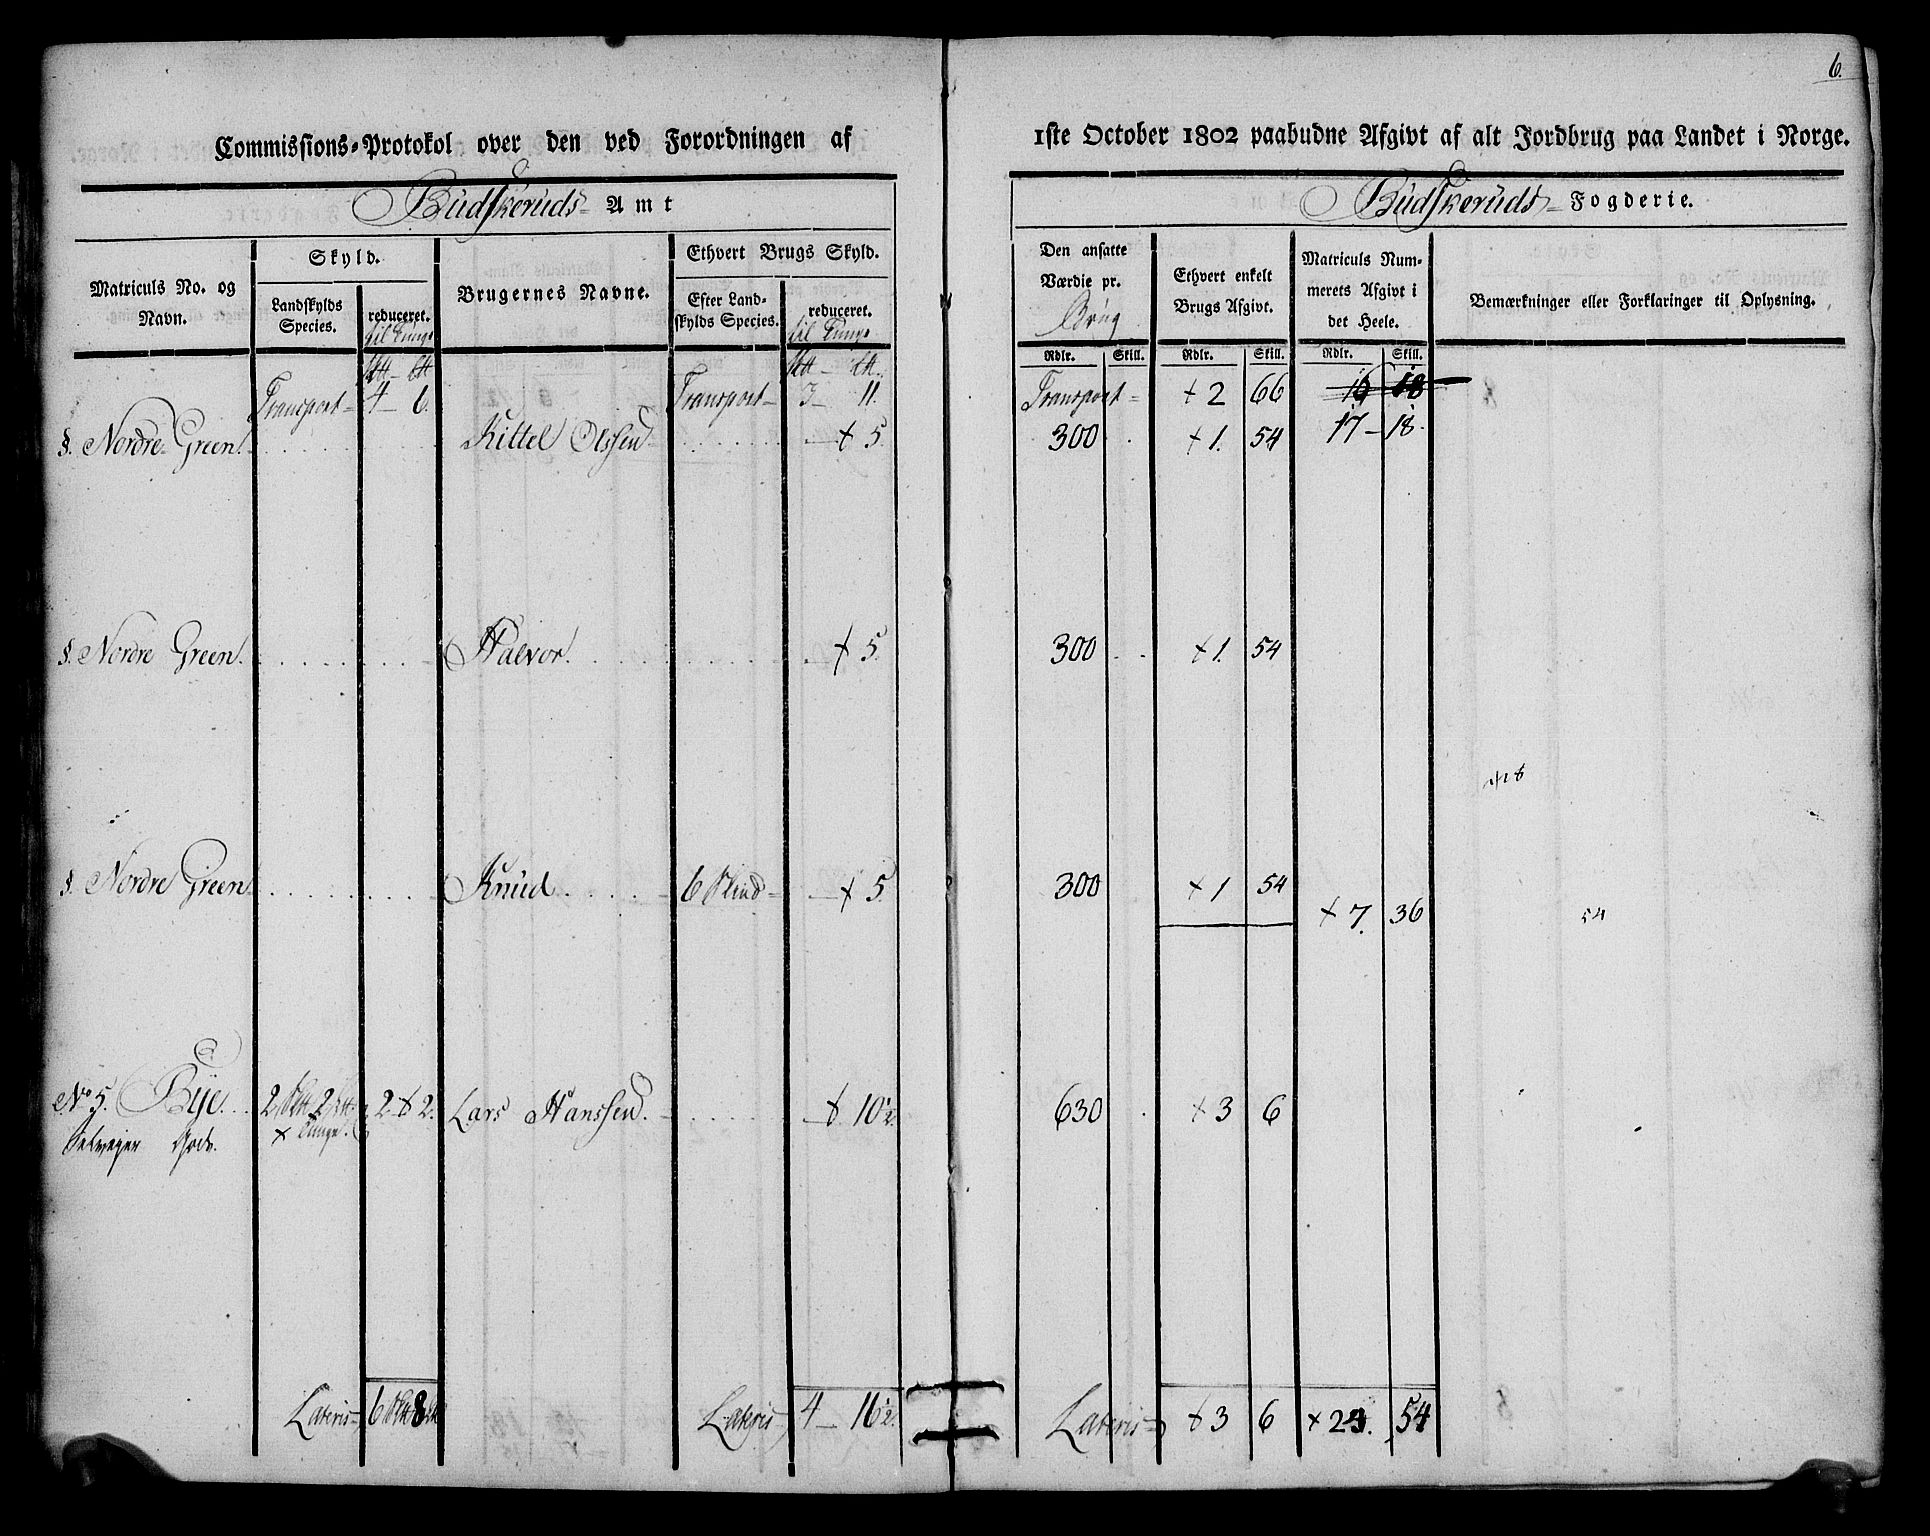 6.
Commissions-Protokol over den ved Forordningen af 1ste October 1802 paabudne Afgivt af alt Jordbrug paa Landet i Norge.
Budskeruds Amt
Budskeruds Fogderie.
Matriculs No. og Navn.
Skyld.
Landskylds Species.
reduceret. til Tunge
Brugernes Navne.
Ethvert Brugs Skyld.
Efter Landskylds Species.
reduceret. til Tunge
Den ansatte Værdie pr. Brüg
Ethvert enkelt Brugs Afgivt.
Matriculs Nummerets Afgivt i det Heele.
Bemærkninger eller Forklaringer til Oplysning.
Rdlr. Skill. Rdlr. Skill. Rdlr. Skill.
Transport 4 - 6. Transport 3 - 11. Transport + 2 66 16 18
§. Nordre Green. Kittel Olssen + 5 300 + 1. 54 17 - 18.
§. Nordre Green. Halvor. + 5. 300 + 1. 54
+18
§. Nordre Green Knüd 6 + 5. 300 + 1 54
+ 7. 36 54
No 5. Bye. 2 2 2 + 2. Lars Hanssen. + 10½. 630 + 3 6
Selveyer Gods. + Tunge.
Lateris 6 8 Lateris 4 - 16½. Lateris + 3 6 + 24. 54